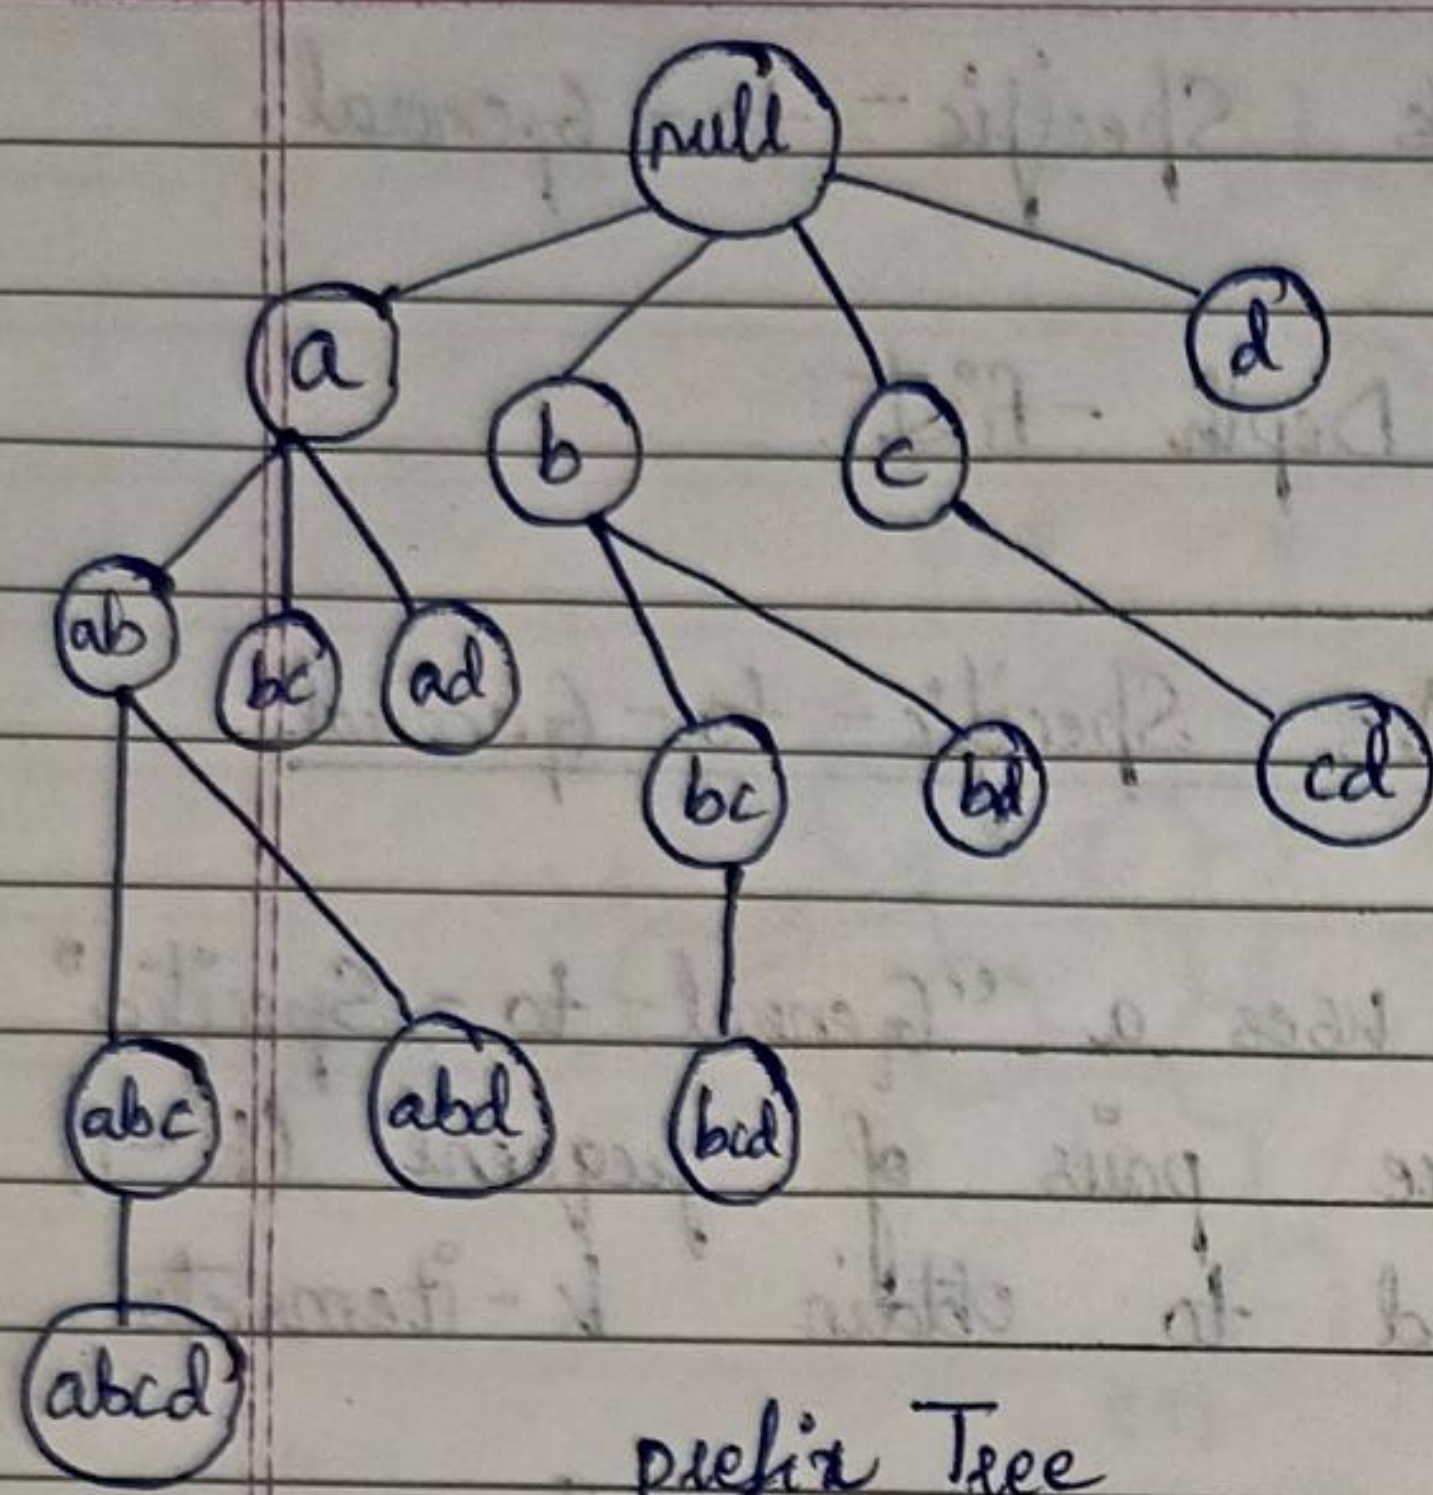 null
a
d
b
c
ab
bc
ad
bc
bd
cd
abc
abd
bcd
abcd
prefix Tree